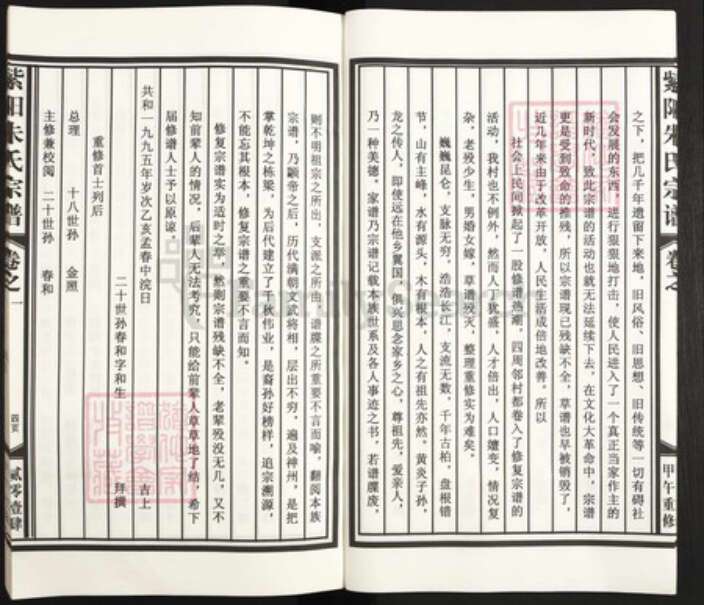 紫阳朱氏宗谱
卷之一
甲午重修
之下，把几千年遗留下来地、旧风俗、旧思想、旧传统等一切有碍社
会发展的东西，进行狠狠地打击，使人民进入了一个真正当家作主的
新时代，致此宗谱的活动也就无法延续下去，在文化大革命中，宗谱
更是受到致命的推残，所以宗谱现已残缺不全，草谱也早被销毁了，
近几年来由于改革开放，人民生活成倍地改善。所以
社会上民间掀起了一股修谱热潮，四周邻村都卷入了修复宗谱的
活动，我村也不例外，然而人丁犹盛，人才倍出，人口嬗变，情况复
杂，老殁少生，男婚女嫁，草谱毁灭，整理重修实为难矣。
巍巍昆仑，支脉无穷，浩浩长江，支流无数，千年古柏，盘根错
节，山有主峰，水有源头，木有根本，人之有祖先亦然。黄炎子孙，
龙之传人，即使远在他乡冀国，俱兴思念家乡之心，尊祖先，爱亲人，
乃一种美德，家谱乃宗谱记载本族世系及各人事迹之书，若谱牒废，
则不明祖宗之所出，支派之所由，谱牒之所重要不言而喻，翻阅本族
宗谱，乃颛帝之后，历代满朝文武将相，层出不穷，遍及神州，是把
掌乾坤之栋梁，为后代建立了千秋伟业，是裔孙好榜样，追宗溯源，
不能忘其根本，修复宗谱之重要不言而知。
修复宗谱实为适时之举，然则宗谱残缺不全，老辈殁没无几，又不
知前辈人的情况，后辈人无法考究，只能给前辈人草草地了结，希下
届修谱人士予以原谅。
吉上
共和一九九五年岁次乙亥孟春中浣日
二十世孙春和字和生 拜撰
重修首士列后
总理 十八世孙 金照
主修兼校阅 二十世孙 春和
紫阳朱氏宗谱
卷之一
四页
贰零壹肆
FamilySearch